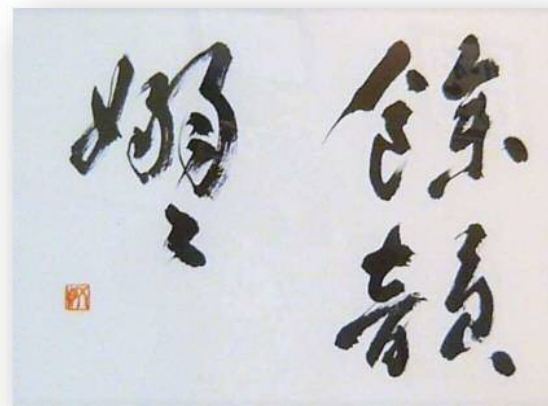 餘韻
嫋々